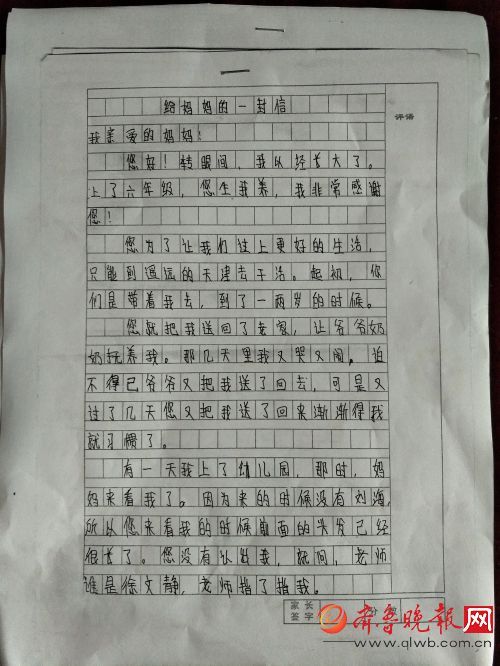 给妈妈的一封信
评语
我亲爱的妈妈！
您好！转眼间，我以经长大了。
上了六年级，您生我养，我非常感谢
您！
您为了让我们过上更好的生活，
只能到遥远的天津去干活。起初，你
们是带着我去，到了一两岁的时候。
您就把我送回了老家，让爷爷奶
奶抚养我。那几天里我又哭又闹。迫
不得已爷爷又把我送了回去，可是又
过了几天您又把我送了回来渐渐得我
就习惯了。
有一天我上了幼儿园，那时，妈
妈来看我了。因为来的时候没有刘海，
所以您来看我的时候前面的头发已经
很长了。您没有认出我，就问，老师
谁是徐文静，老师指了指我。
家长
签字
齐鲁晚报网
www.qlwb.com.cn